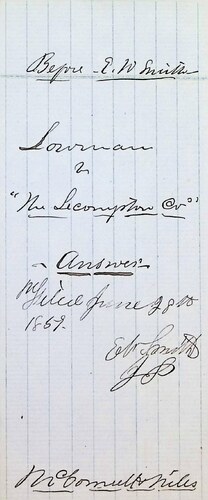 Before E. W Smith
Lowman
v
"The Lecompton Co"
Answer
Filed June 28th
1859.
E W Smith
J P
McConnell & Niles